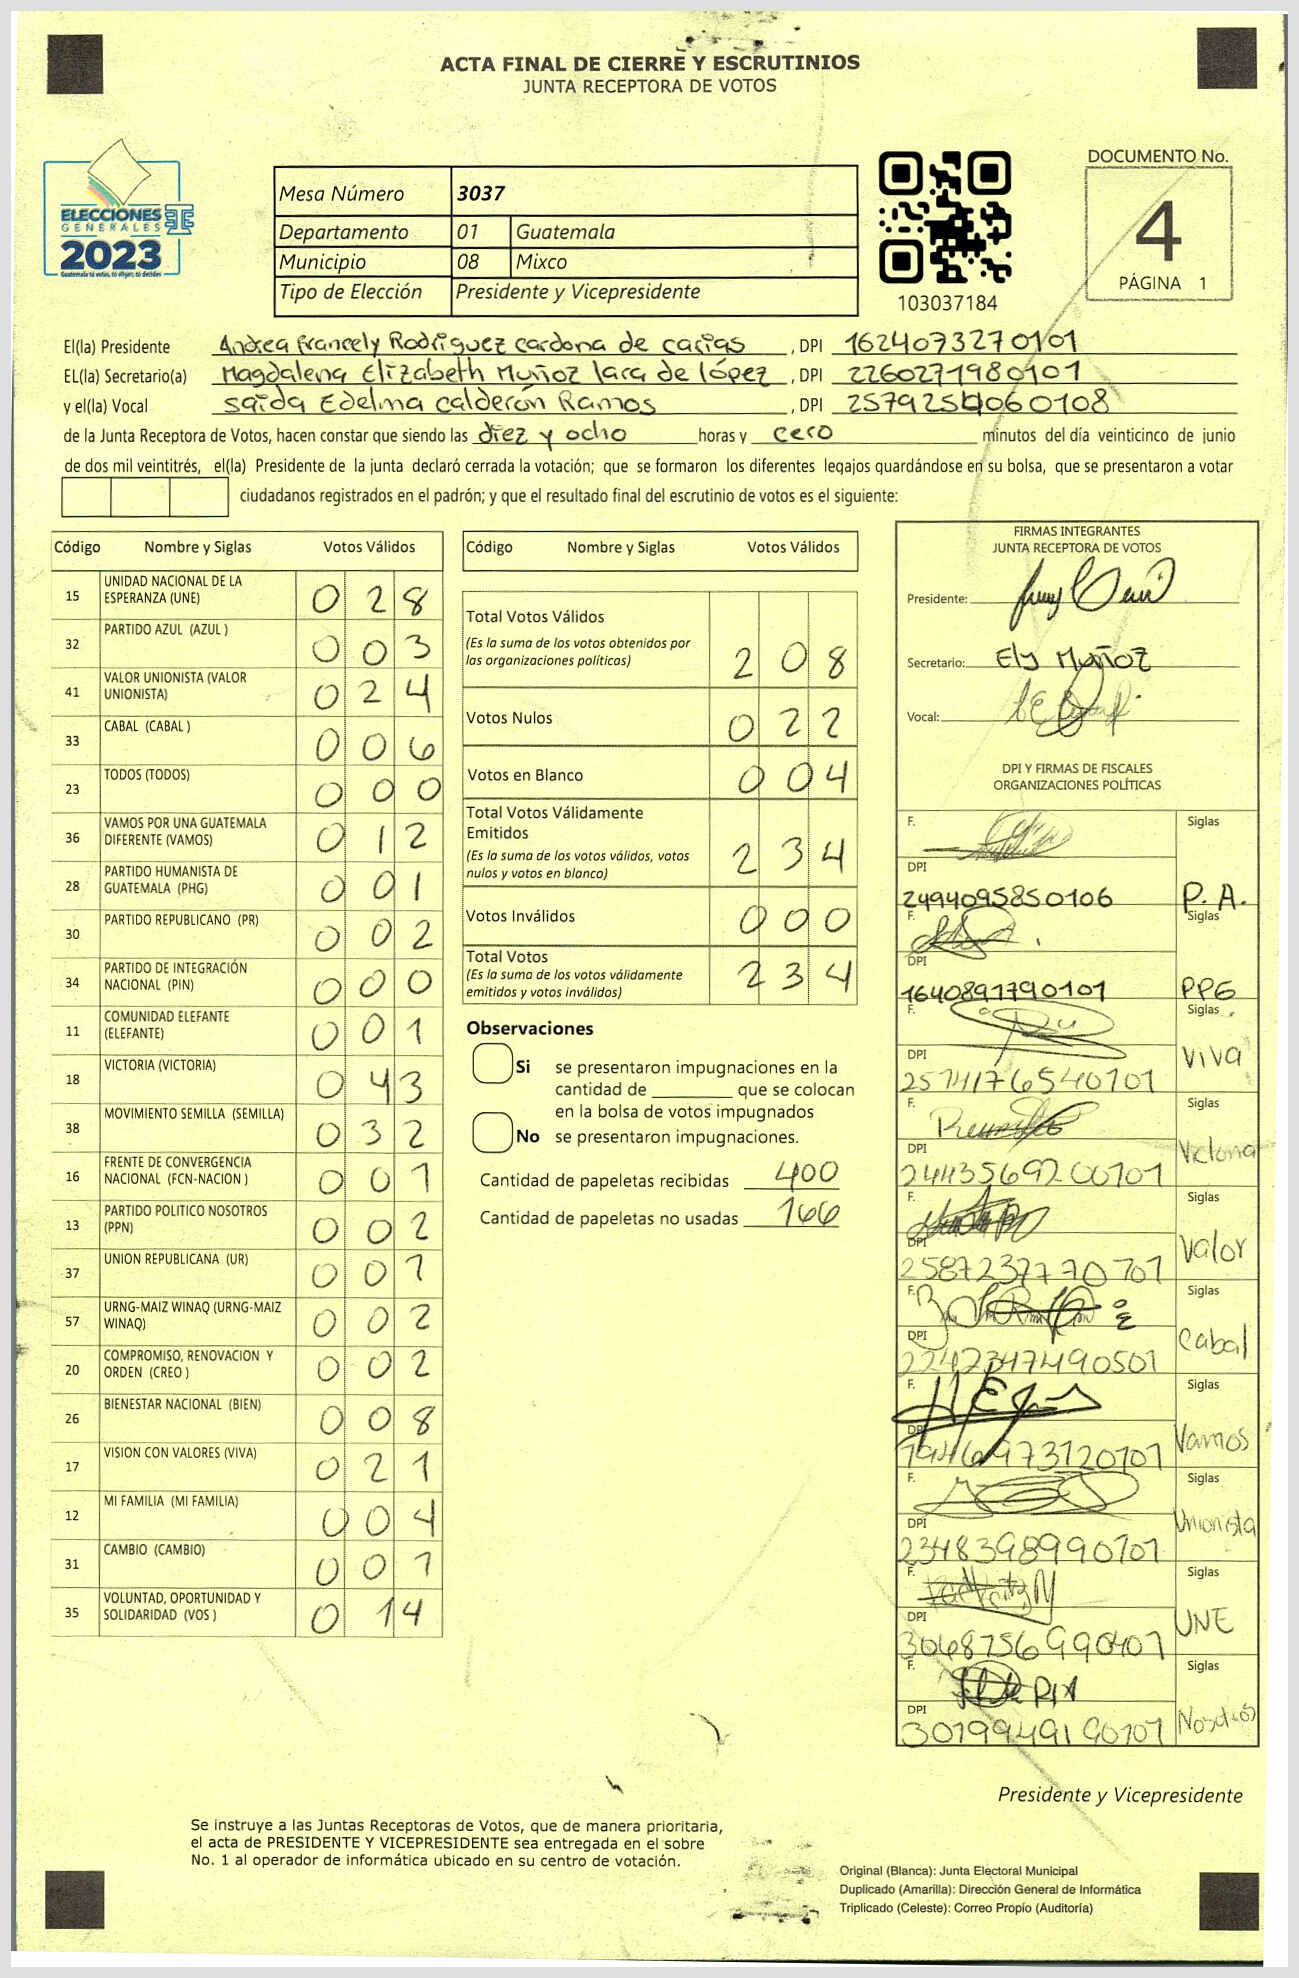 ACTA FINAL DE CIERRE Y ESCRUTINIOS
JUNTA RECEPTORA DE VOTOS
ELECCIONES
GENERALES
2023
Guatemala tú votas, tú eliges, tú decides
Mesa Número 3037
Departamento 01 Guatemala
Municipio 08 Mixco
Tipo de Elección Presidente y Vicepresidente
103037184
DOCUMENTO No.
4
PÁGINA 1
El(la) Presidente Andrea Francely Rodríguez cardona de carias , DPI 1624073270101
EL(la) Secretario(a) Magdalena Elizabeth Muñoz lara de lópez , DPI 2260271980101
y el(la) Vocal saida Edelma calderón Ramos , DPI 2579254060108
de la Junta Receptora de Votos, hacen constar que siendo las diez y ocho horas y cero minutos del día veinticinco de junio
de dos mil veintitrés, el(la) Presidente de la junta declaró cerrada la votación; que se formaron los diferentes legajos quardándose en su bolsa, que se presentaron a votar
ciudadanos registrados en el padrón; y que el resultado final del escrutinio de votos es el siguiente:
Código Nombre y Siglas Votos Válidos
15 UNIDAD NACIONAL DE LA ESPERANZA (UNE) 0 2 8
32 PARTIDO AZUL (AZUL ) 0 0 3
41 VALOR UNIONISTA (VALOR UNIONISTA) 0 2 4
33 CABAL (CABAL ) 0 0 6
23 TODOS (TODOS) 0 0 0
36 VAMOS POR UNA GUATEMALA DIFERENTE (VAMOS) 0 1 2
28 PARTIDO HUMANISTA DE GUATEMALA (PHG) 0 0 1
30 PARTIDO REPUBLICANO (PR) 0 0 2
34 PARTIDO DE INTEGRACIÓN NACIONAL (PIN) 0 0 0
11 COMUNIDAD ELEFANTE (ELEFANTE) 0 0 1
18 VICTORIA (VICTORIA) 0 4 3
38 MOVIMIENTO SEMILLA (SEMILLA) 0 3 2
16 FRENTE DE CONVERGENCIA NACIONAL (FCN-NACION ) 0 0 1
13 PARTIDO POLITICO NOSOTROS (PPN) 0 0 2
37 UNION REPUBLICANA (UR) 0 0 1
57 URNG-MAIZ WINAQ (URNG-MAIZ WINAQ) 0 0 2
20 COMPROMISO, RENOVACION Y ORDEN (CREO ) 0 0 2
26 BIENESTAR NACIONAL (BIEN) 0 0 8
17 VISION CON VALORES (VIVA) 0 2 1
12 MI FAMILIA (MI FAMILIA) 0 0 4
31 CAMBIO (CAMBIO) 0 0 1
35 VOLUNTAD, OPORTUNIDAD Y SOLIDARIDAD (VOS ) 0 1 4
Código Nombre y Siglas Votos Válidos
Total Votos Válidos
(Es la suma de los votos obtenidos por
las organizaciones políticas) 2 0 8
Votos Nulos 0 2 2
Votos en Blanco 0 0 4
Total Votos Válidamente
Emitidos
(Es la suma de los votos válidos, votos
nulos y votos en blanco) 2 3 4
Votos Inválidos 0 0 0
Total Votos
(Es la suma de los votos válidamente
emitidos y votos inválidos) 2 3 4
Observaciones
Si se presentaron impugnaciones en la
cantidad de ________ que se colocan
en la bolsa de votos impugnados
No se presentaron impugnaciones.
Cantidad de papeletas recibidas 400
Cantidad de papeletas no usadas 166
FIRMAS INTEGRANTES
JUNTA RECEPTORA DE VOTOS
Presidente:
Secretario: Ely MUÑOZ
Vocal:
DPI Y FIRMAS DE FISCALES
ORGANIZACIONES POLÍTICAS
F. Siglas
DPI
2494095850106 P. A.
F. Siglas
DPI
1640891790101 PPG
F. Siglas
DPI VIVA
2574176540101
F. Siglas
DPI Victoria
2443569200101
F. Siglas
DPI Valor
2587237770101
F. Siglas
DPI Cabal
2242347490501
F. Siglas
DPI Vamos
1946973120101
F. Siglas
DPI Unionista
2348398990101
F. Siglas
DPI UNE
3068756990401
F. Siglas
DPI Nosotros
3019949190101
Presidente y Vicepresidente
Se instruye a las Juntas Receptoras de Votos, que de manera prioritaria,
el acta de PRESIDENTE Y VICEPRESIDENTE sea entregada en el sobre
No. 1 al operador de informática ubicado en su centro de votación.
Original (Blanca): Junta Electoral Municipal
Duplicado (Amarilla): Dirección General de Informática
Triplicado (Celeste): Correo Propio (Auditoría)